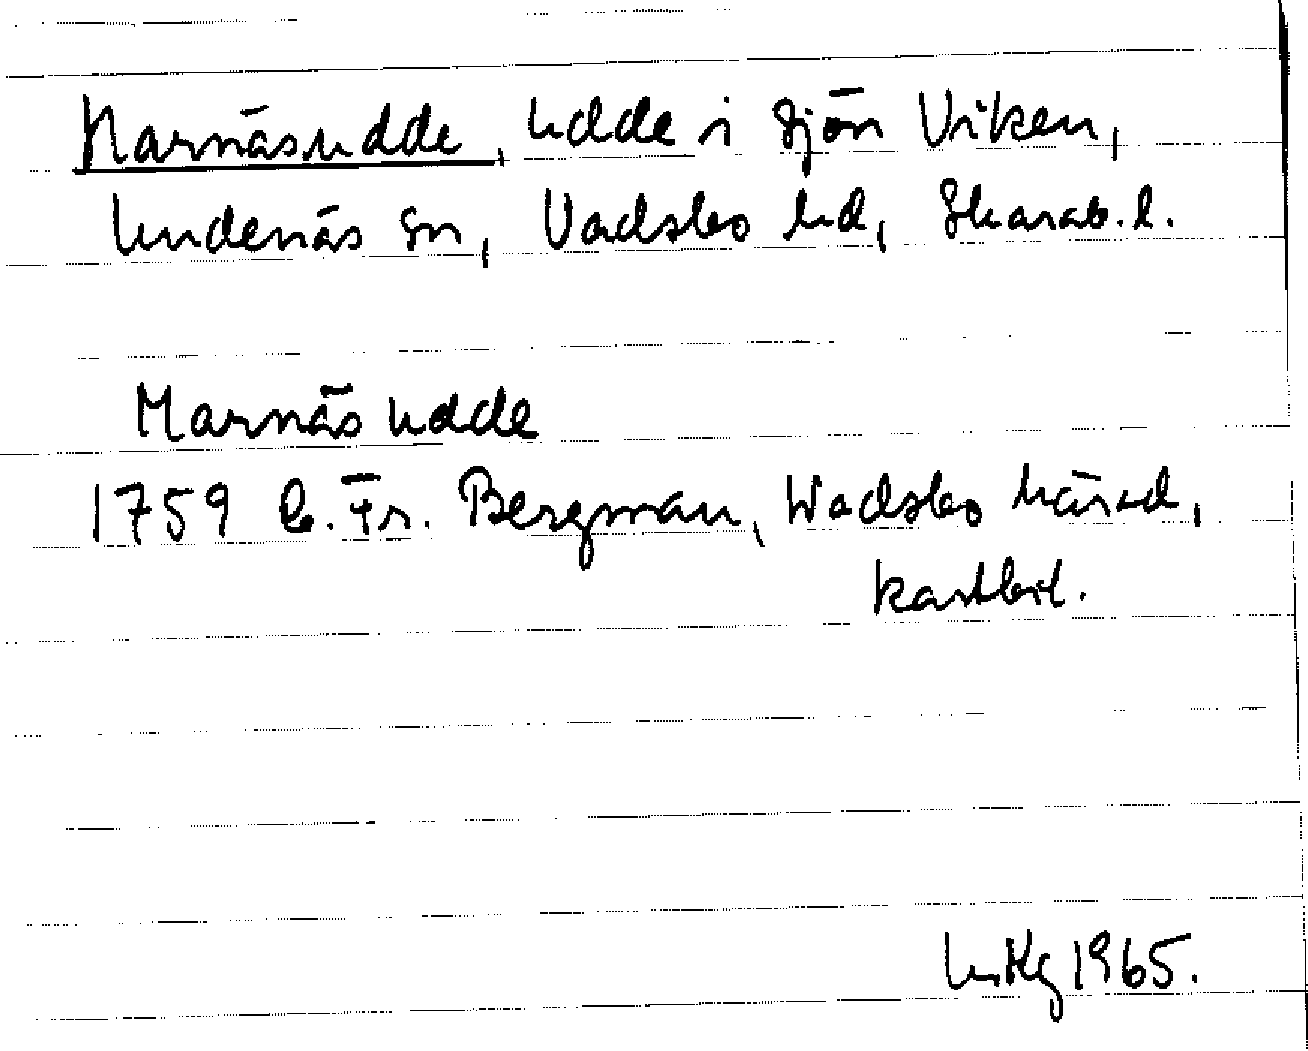 Marnäsudde, udde i sjön Viken,
Undenäs sn, Vadsbo hd, Skarab. l.
Marnäs udde
1759 C. Fr. Bergman, Wadsbo härad,
kartbil.
1965.